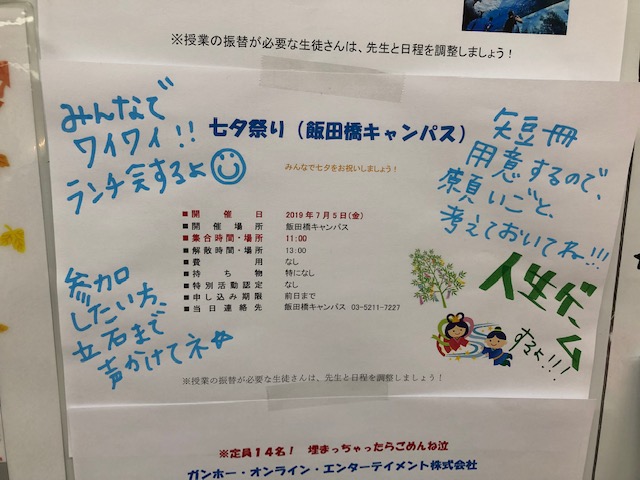 ※授業の振替が必要な生徒さんは、先生と日程を調整しましょう！
みんなで
ワイワイ!!
ランチ会するよ
七夕祭り（飯田橋キャンパス）
みんなで七夕をお祝いしましょう！
短冊
用意するので、
願いごと、
考えておいてね!!!
■開催日 2019年7月5日(金)
■開催場所 飯田橋キャンパス
■集合時間・場所 11:00
■解散時間・場所 13:00
■費用 なし
■持ち物 特になし
■特別活動認定 なし
■申し込み期限 前日まで
■当日連絡先 飯田橋キャンパス 03-5211-7227
参加
したい方、
立石まで
声かけてネ
人生ゲーム
するよ!!!
※授業の振替が必要な生徒さんは、先生と日程を調整しましょう！
※定員14名！ 埋まっちゃったらごめんね泣
ガンホー・オンライン・エンターテイメント株式会社